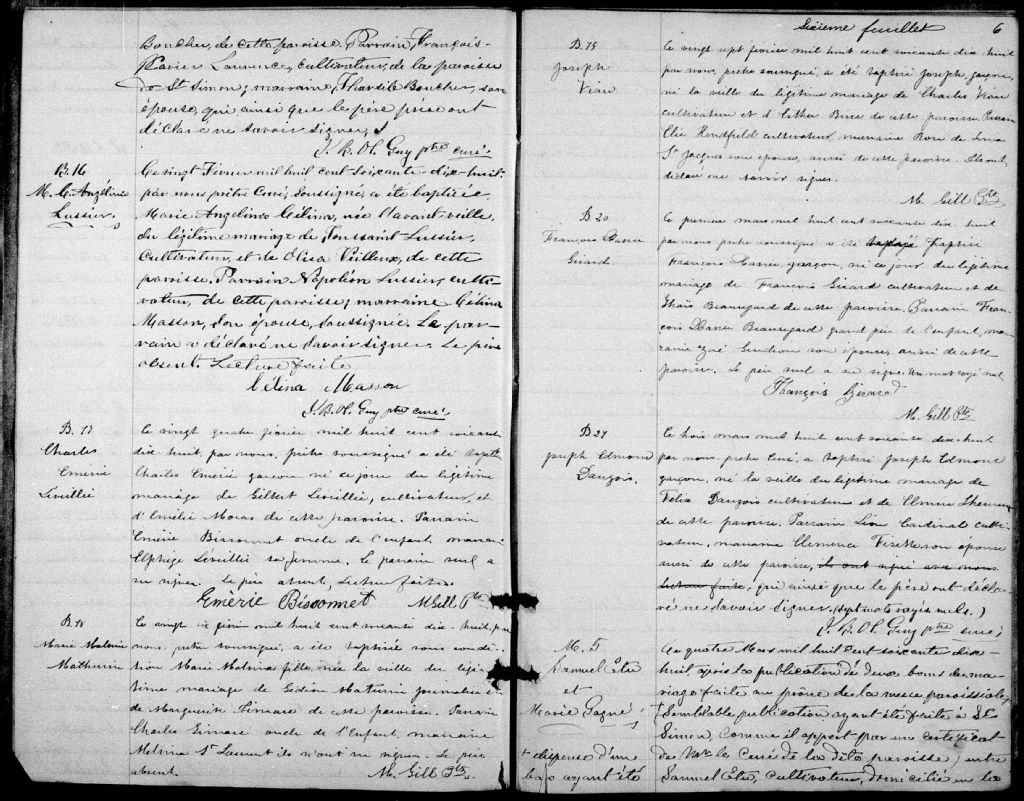 Boucher, de cette paroisse. Parrain, François-
Xavier Laurence, cultivateur, de la paroisse
de St Simon; marraine, Tharsile Boucher, son
épouse, qui ainsi que le père présent ont
déclaré ne savoir signer.
J. B. Ol. Guy ptre curé.
B. 16
M. C. Angélina
Lussier.
Ce vingt Février mil huit cent soixante-dix-huit
par nous prêtre Curé, soussigné, a été baptisée
Marie Angelina Célina, née l'avant-veille
du légitime mariage de Toussaint Lussier,
Cultivateur, et de Elisa Veilleux, de cette
paroisse. Parrain Napoléon Lussier, culti-
vateur, de cette paroisse; marraine Célina
Masson, son épouse, soussignée. Le par-
rain a déclaré ne savoir signer. Le père
absent. Lecture faite
Célina Masson
J. B. Ol. Guy ptre curé.
B. 17
Charles
Emérie
Léveillée
Ce vingt quatre février mil huit cent soixante
dix-huit, par nous, prêtre soussigné a été baptisé
Charles Emérie garçon né ce jour du légitime
mariage de Gilbert Léveillée, cultivateur, et
d'Emélie de cette paroisse. Parrain
Emérie Bissonnet oncle de l'enfant, marraine
Elphége Léveillée sa femme. Le parrain seul a
su signer. Le père absent. Lecture faite.
Emérie Bissonnet M. Gill Ptre
B. 18
Marie Malvina
Mathurin
Ce vingt février mil huit cent soixante dix-huit, par
nous, prêtre soussigné, a été baptisée sous condi-
tion Marie Malvina fille, née la veille du légi-
time mariage de Gédéon Mathurin journalier et
de Marguerite de cette paroisse. Parrain
Charles oncle de l'enfant, marraine
Malvina St Laurent ils n'ont su signer. Le père
absent.
M. Gill Ptre
Sixième feuillet 6
B. 19
Joseph
Viau
Ce vingt sept février mil huit cent soixante dix-huit
par nous, prêtre soussigné, a été baptisé Joseph, garçon,
né la veille du légitime mariage de Charles Viau
cultivateur et d'Esther de cette paroisse. Parrain
Elie cultivateur marraine Rose de Lima
St Jacques son épouse, aussi de cette paroisse.
déclaré ne savoir signer.
M. Gill Ptre
B 20
François Xavier
Girard.
Ce premier mars mil huit cent soixante dix huit
par nous prêtre soussigné a été baptisé
François Xavier, garçon, né ce jour du légitime
mariage de François Girard cultivateur et de
Beauregard de cette paroisse. Parrain Fran-
çois Xavier Beauregard grand père de l'enfant, mar-
raine Zoé Gendron son épouse, aussi de cette
paroisse. Le père seul a su signer. Un mot rayé nul
François Girard
M. Gill Ptre
B 21
Joseph Edmond
Dauzois.
Ce trois mars mil huit cent soixante dix-huit
par nous prêtre Curé, a baptisé Joseph Edmond
garçon, né la veille du légitime mariage de
Felix Dauzois cultivateur et de
de cette paroisse. Parrain Léon Cardinal culti-
vateur, marraine Clemence Fisette son épouse
aussi de cette paroisse, ils ont signé avec nous
lecture faite, qui ainsi que le père ont décla-
ré ne savoir signer. (sept mots rayés nuls.)
J. B. Ol. Guy ptre curé.
M. 5
Samuel Etu
et
Marie Gagné.
+ dispense d'un
ban ayant été
Ce quatre Mars mil huit cent soixante dix-
huit, après la publication de deux bans de ma-
riage faite au prône de la messe paroissiale,
semblable publication ayant été faite à St
Simon, comme il appert par un certificat
de Mr le Curé de la dite paroisse) entre
Samuel Etu, cultivateur, domicilié en la